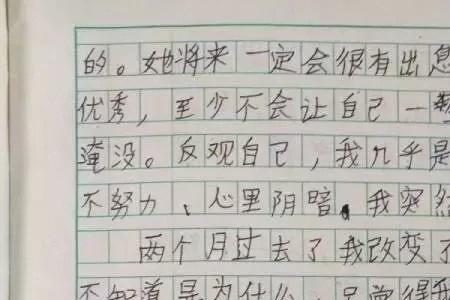 的。她将来一定会很有出息
优秀，至少不会让自己一
淹没。反观自己，我几乎是
不努力、心里阴暗。我突然
两个月过去了我改变了
不知道是为什么，只觉得我